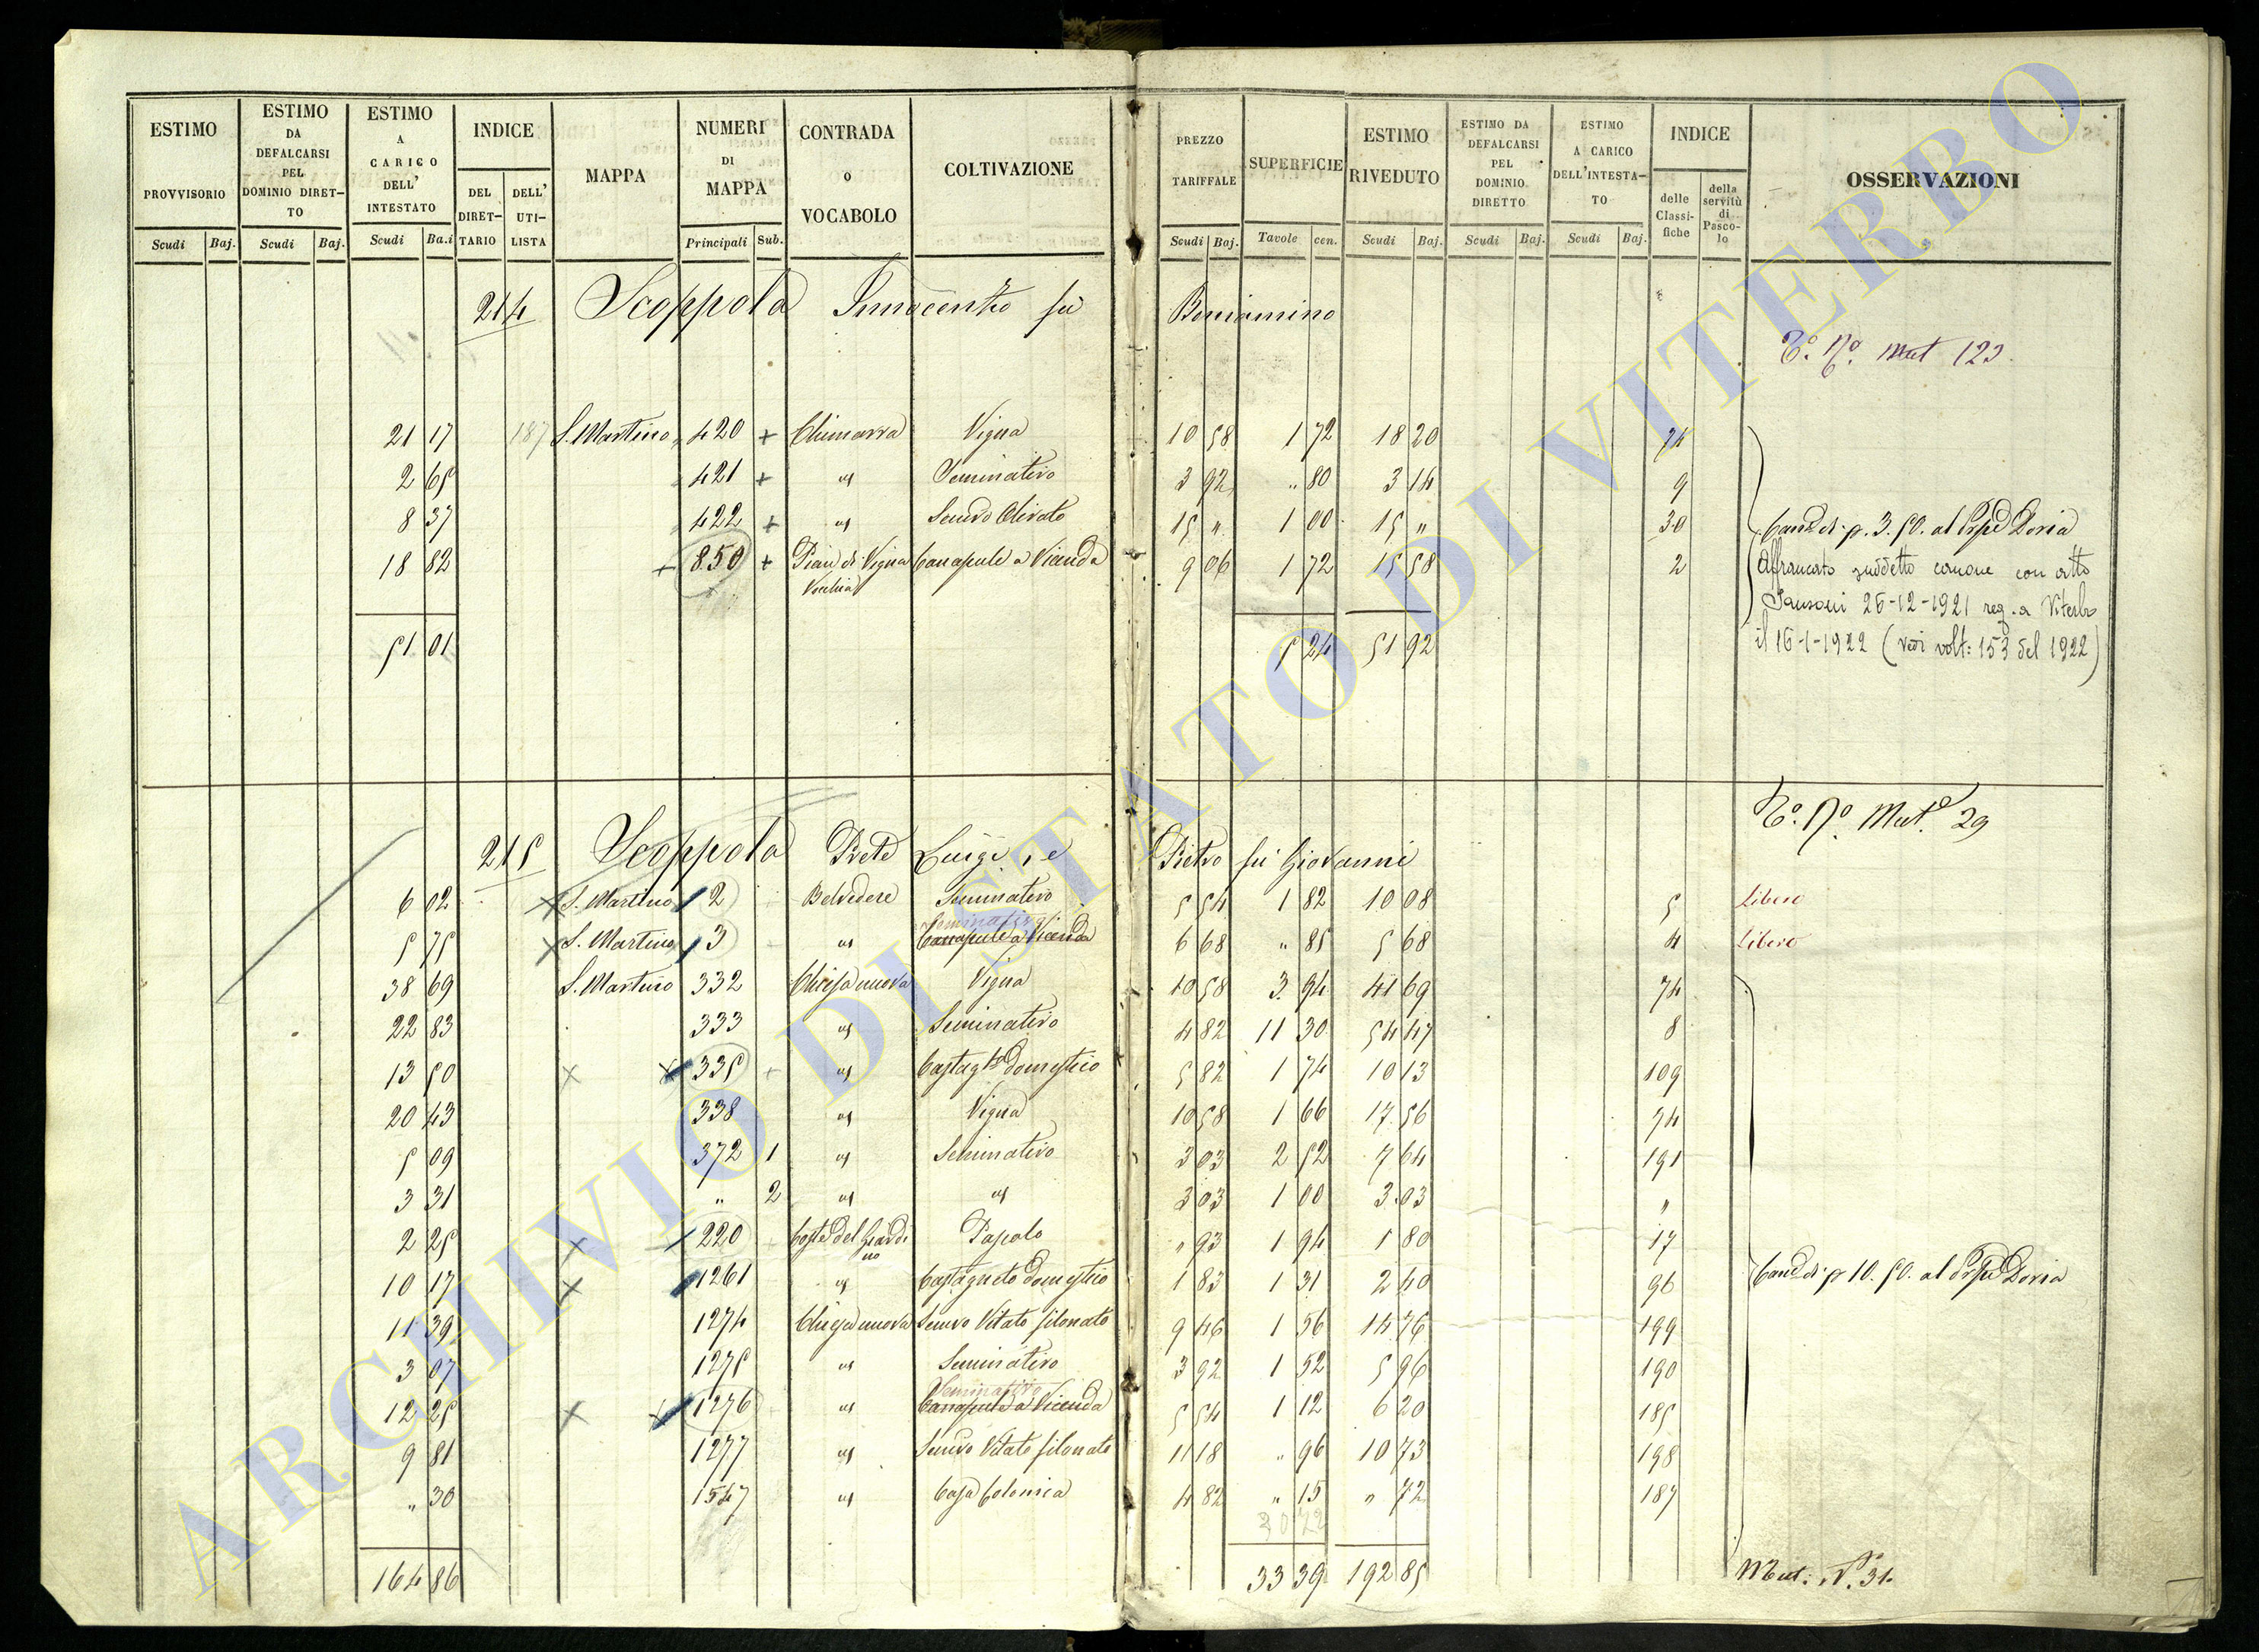 ESTIMO PROVVISORIO Scudi Baj.
ESTIMO DA DEFALCARSI PEL DOMINIO DIRET- TO Scudi Baj.
ESTIMO A CARICO DELL' INTESTATO Scudi Ba.i
INDICE DEL DIRET- TARIO DELL' UTI- LISTA
MAPPA
NUMERI DI MAPPA Principali Sub.
CONTRADA O VOCABOLO
COLTIVAZIONE
PREZZO TARIFFALE Scudi Baj.
SUPERFICIE Tavole cen.
ESTIMO RIVEDUTO Scudi Baj.
ESTIMO DA DEFALCARSI PEL DOMINIO DIRETTO Scudi Baj.
ESTIMO A CARICO DELL'INTESTA- TO Scudi Baj.
INDICE delle Classi- fiche della servitù di Pasco- lo
OSSERVAZIONI
214 Scoppola Innocenzo fu Beniamino
Mut 123.
21 17 187 S. Martino 420 + Chimarra Vigna 10 58 1 72 18 20 74
2 65 421 + " Seminativo 3 92 " 80 3 14 9
8 37 422 + " Semvo Olivato 15 " 1 00 15 " 30 Cane di p. 3.50. al Prpe Doria
18 82 + 850 + Pian di Vigna Vecchia Canapule a Vicenda 9 06 1 72 15 58 2 Affrancato suddetto canone con atto
Sansoni 26-12-1921 reg. a Viterbo
il 16-1-1922 (vedi volt: 153 del 1922)
51 01 5 24 51 92
Mut.e 29
215 Scoppola Prete Luigi, e Pietro fu Giovanni
6 02 S. Martino 2 Belvedere Seminativo 5 54 1 82 10 08 5 Libero
Seminativo
5 75 S. Martino 3 " Canapule a Vicenda 6 68 " 85 5 68 4 Libero
38 69 S. Martino 332 Chiesa nuova Vigna 10 58 3 94 41 69 74
22 83 333 " Seminativo 4 82 11 30 54 47 8
13 50 335 " Castagto domestico 5 82 1 74 10 13 109
20 43 338 " Vigna 10 58 1 66 17 56 74
5 09 372 1 " Seminativo 3 03 2 52 7 64 191
3 31 " 2 " " 3 03 1 00 3 03 "
2 25 220 Coste del Giardi no Pascolo " 93 1 94 1 80 17
10 17 1261 " Castagneto domestico 1 83 1 31 2 40 96 Cane di p 10.50. al Prpe Doria
11 39 1274 Chiesa nuova Semvo Vitato filonato 9 46 1 56 14 76 199
3 07 1275 " Seminativo 3 92 1 52 5 96 190
Seminativo
12 25 1276 " Canapule a Vicenda 5 54 1 12 6 20 185
9 81 1277 " Semvo Vitato filonato 11 18 " 96 10 73 198
" 30 1547 " Casa Colonica 4 82 " 15 " 72 187
164 86 33 39 192 85 Mut: N.° 31.
ARCHIVIO DI STATO DI VITERBO